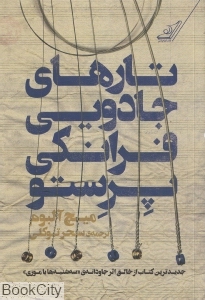 تارهای
جادویی
فرانکی
پرستو
میچ آلبوم
ترجمه‌ی سحر
جدیدترین کتاب از خالق اثر جاودانه‌ی «سه‌شنبه‌ها با موری»
BookCity